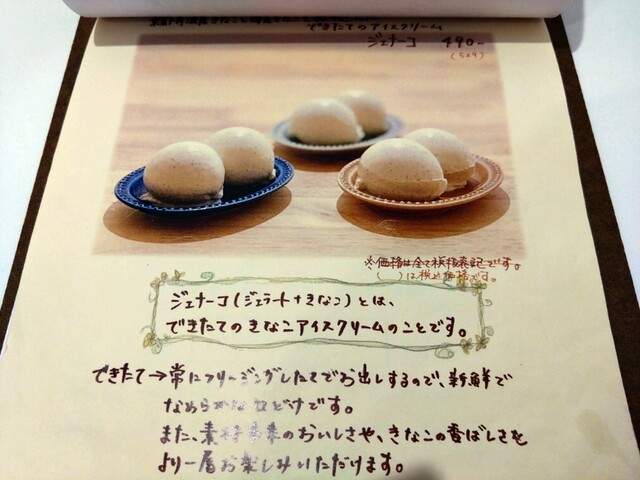 できたてのアイスクリーム
ジェナーコ 490-
(529)
※価格は全て税抜表記です。
( )は税込価格です。
ジェナーコ(ジェラート+きなこ)とは、
できたてのきなこアイスクリームのことです。
できたて→常にフリージングしたてでお出しするので、新鮮で
なめらかな口どけです。
また、素材本来のおいしさや、きなこの香ばしさを
より一層お楽しみいただけます。